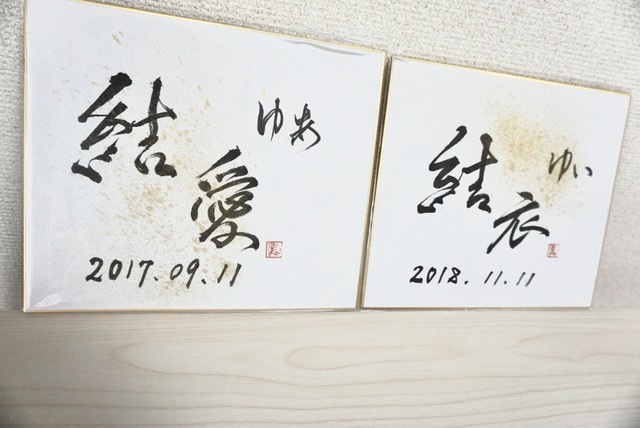 結愛
ゆあ
2017.09.11
結衣
ゆい
2018.11.11